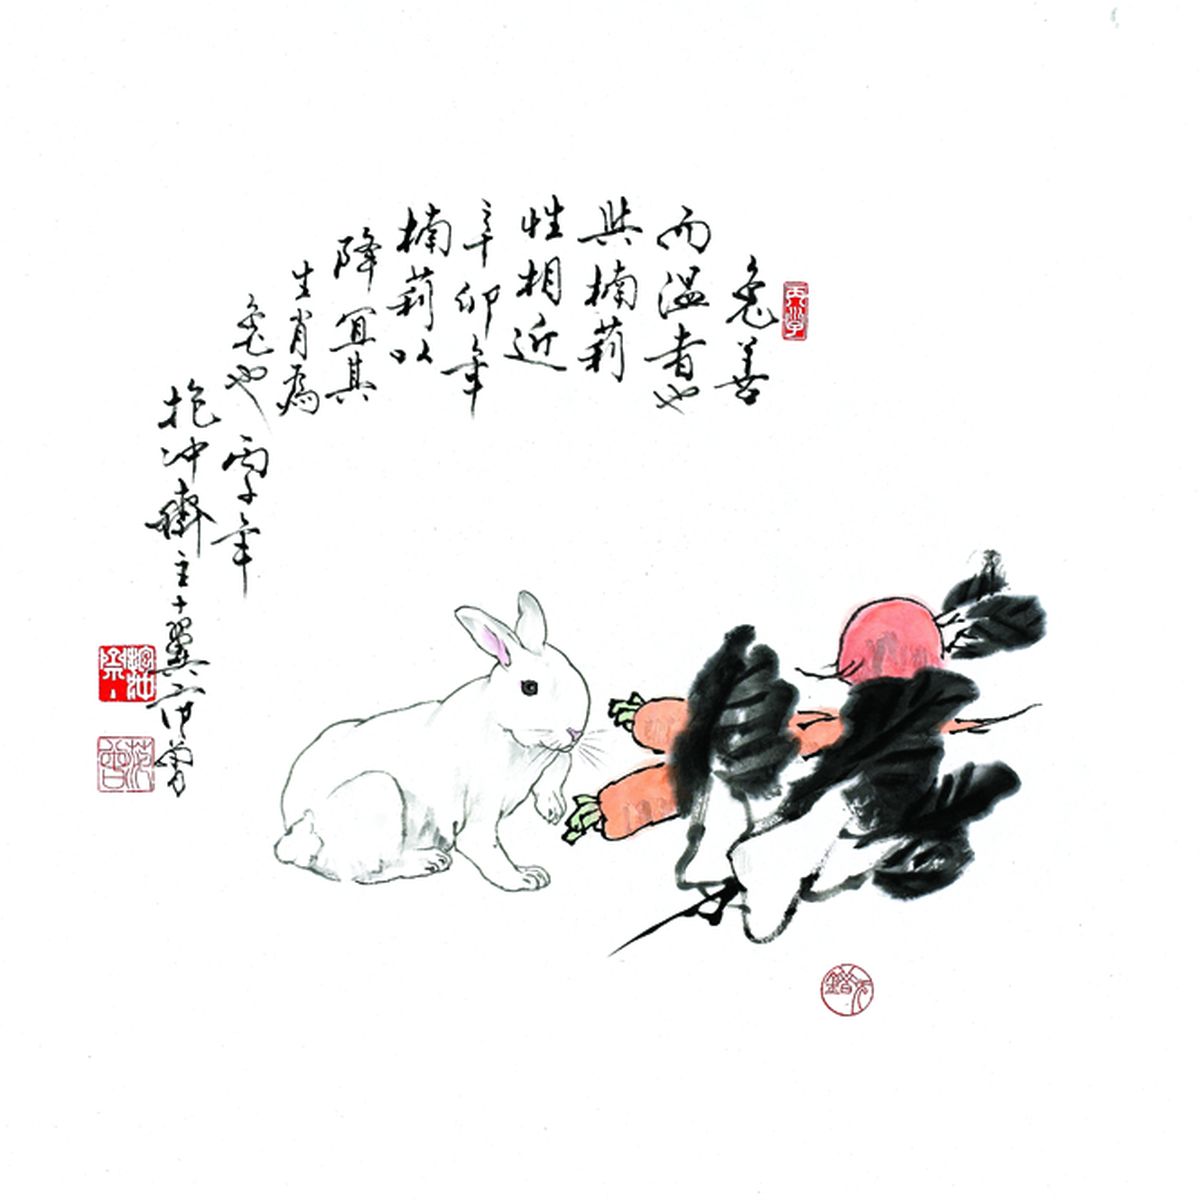 兔善
而温者也
與楠莉
性相近
辛卯年
楠莉以
降宜其
生肖為
兔也
年
抱冲齋主十翼范曾